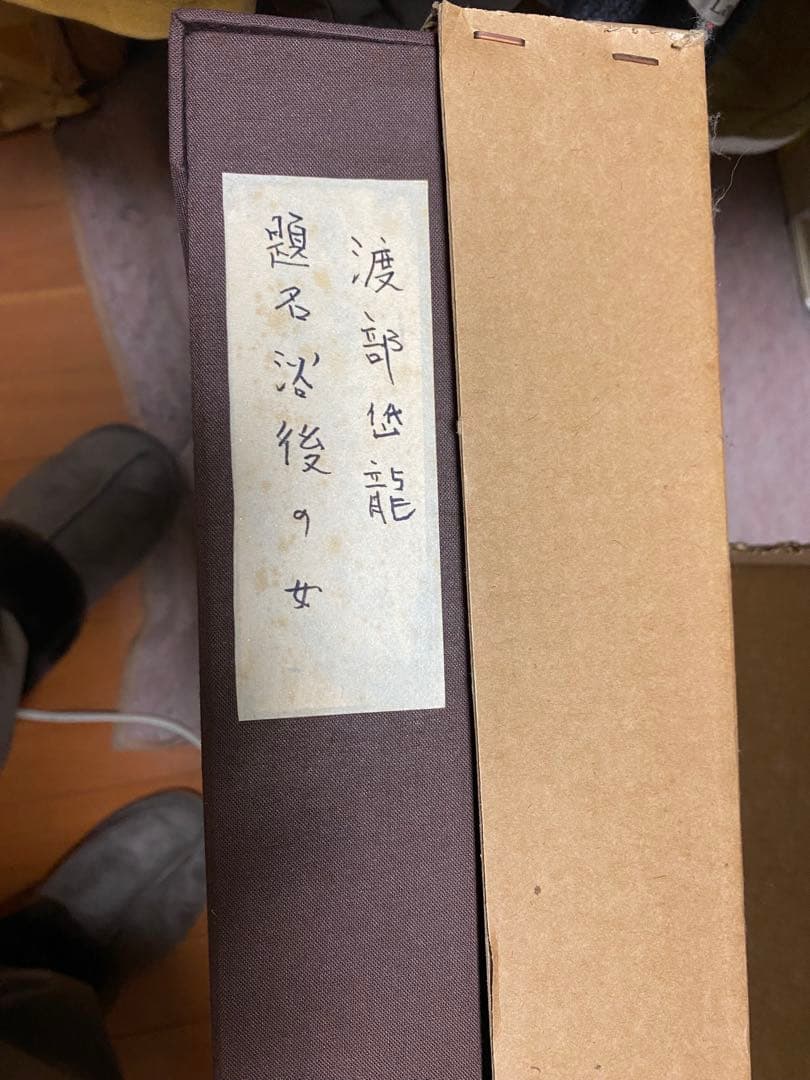 渡部岱龍
題名浴後の女